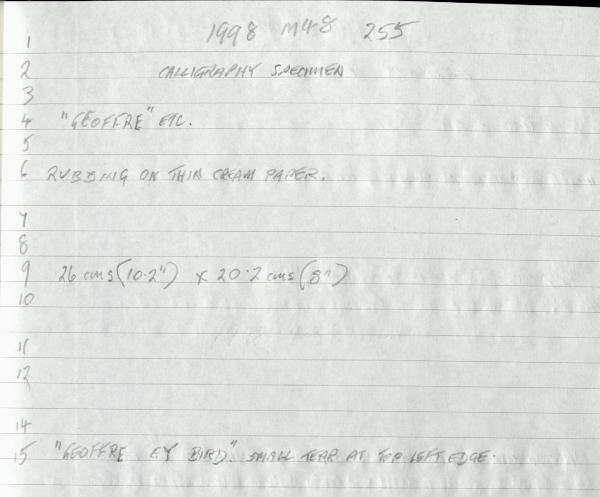 1998 M48 255
1
2 CALLIGRAPHY SPECIMEN
3
4 "GEOFFRE" ETC.
5
6 RUBBING ON THIN CREAM PAPER.
7
8
9 26 cms (10.2") x 20.2 cms (8")
10
11
12
14
15 "GEOFFRE EY BIRD." SMALL TEAR AT TOP LEFT EDGE.